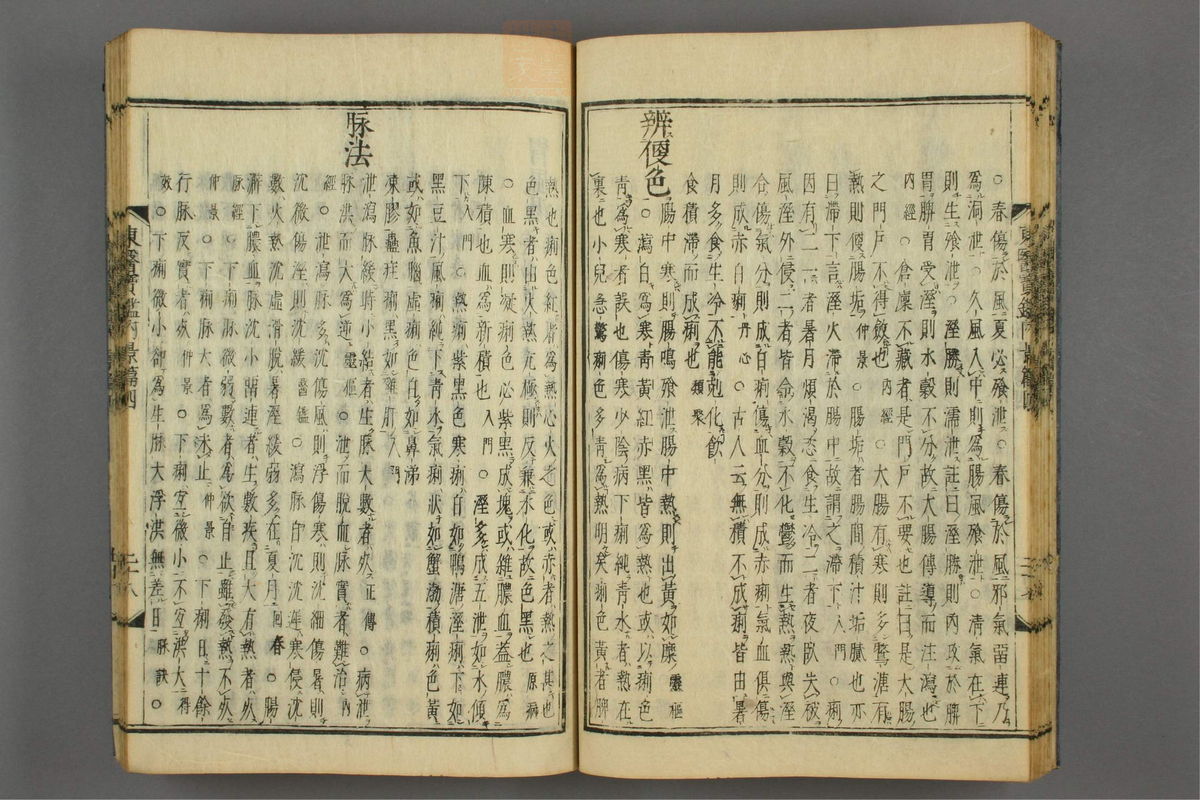 ○春傷於風夏必飱泄○春傷於風邪氣留連乃
爲洞泄○久風入中則爲腸風飱泄○清氣在下
則生飱泄○溼勝則濡泄註曰溼勝則內攻於脾
胃脾胃受溼則水穀不分故大腸傳導而注瀉也
內經○倉廩不藏者是門戶不要也註曰是大腸
之門戶不得斂也內經○大腸有寒則多鶩溏有
熱則便腸垢仲景○腸垢者腸間積汁垢膩也亦
曰滯下言溼火滯於腸中故謂之滯下入門○痢
因有二一者暑月煩渴恣食生冷二者夜臥失被
風溼外侵二者皆令水穀不化鬱而生熱熱與溼
合傷氣分則成白痢傷血分則成赤痢氣血俱傷
則成赤白痢丹心○古人云無積不成痢皆由暑
月多食生冷不能剋化飲
食積滯而成痢也類聚
辨便色
腸中寒則腸鳴飱泄腸中熱則出黃如糜靈樞
○瀉白爲寒青黃紅赤黑皆爲熱也或以痢色
青爲寒者誤也傷寒少陰病下痢純青水者熱在
裏也小兒急驚痢色多青爲熱明矣痢色黃者脾
熱也痢色紅者心火之色或赤者熱之甚也
色黑者由火熱亢極則反兼水化故色黑也原病
○血寒則凝痢色必紫黑成塊或雜膿血蓋膿爲
陳積也血爲新積也入門○溼多成五泄如水傾
下入門○熱痢紫黑色寒痢白如鴨溏溼痢下如
黑豆汁風痢純下青水氣痢狀如蟹渤積痢色黃
或如魚腦虛痢色白如鼻涕
凍膠蠱疰痢黑如雞肝入門
脉法
泄瀉脉緩時小結者生脉大數者死正傳○病泄
脉洪而大爲逆靈樞○泄而脫血脉實者難治內
經○泄瀉脉多沈傷風則浮傷寒則沈細傷暑則
沈微傷溼則沈緩醫鑑○瀉脉自沈沈遲寒侵沈
數火熱沈虛滑脫暑溼緩弱多在夏月回春○腸
澼下膿血脉沈小留連者生數疾且大有熱者死
脉經○下痢脉微弱數者爲欲自止雖發熱不死
仲景○下痢脉大者爲未止仲景○下痢日十餘
行脉反實者死仲景○下痢宜微小不宜洪大得
效○下痢微小卻爲生脉大浮洪無差日脉訣○
東醫寶鑑內景篇四
二十八